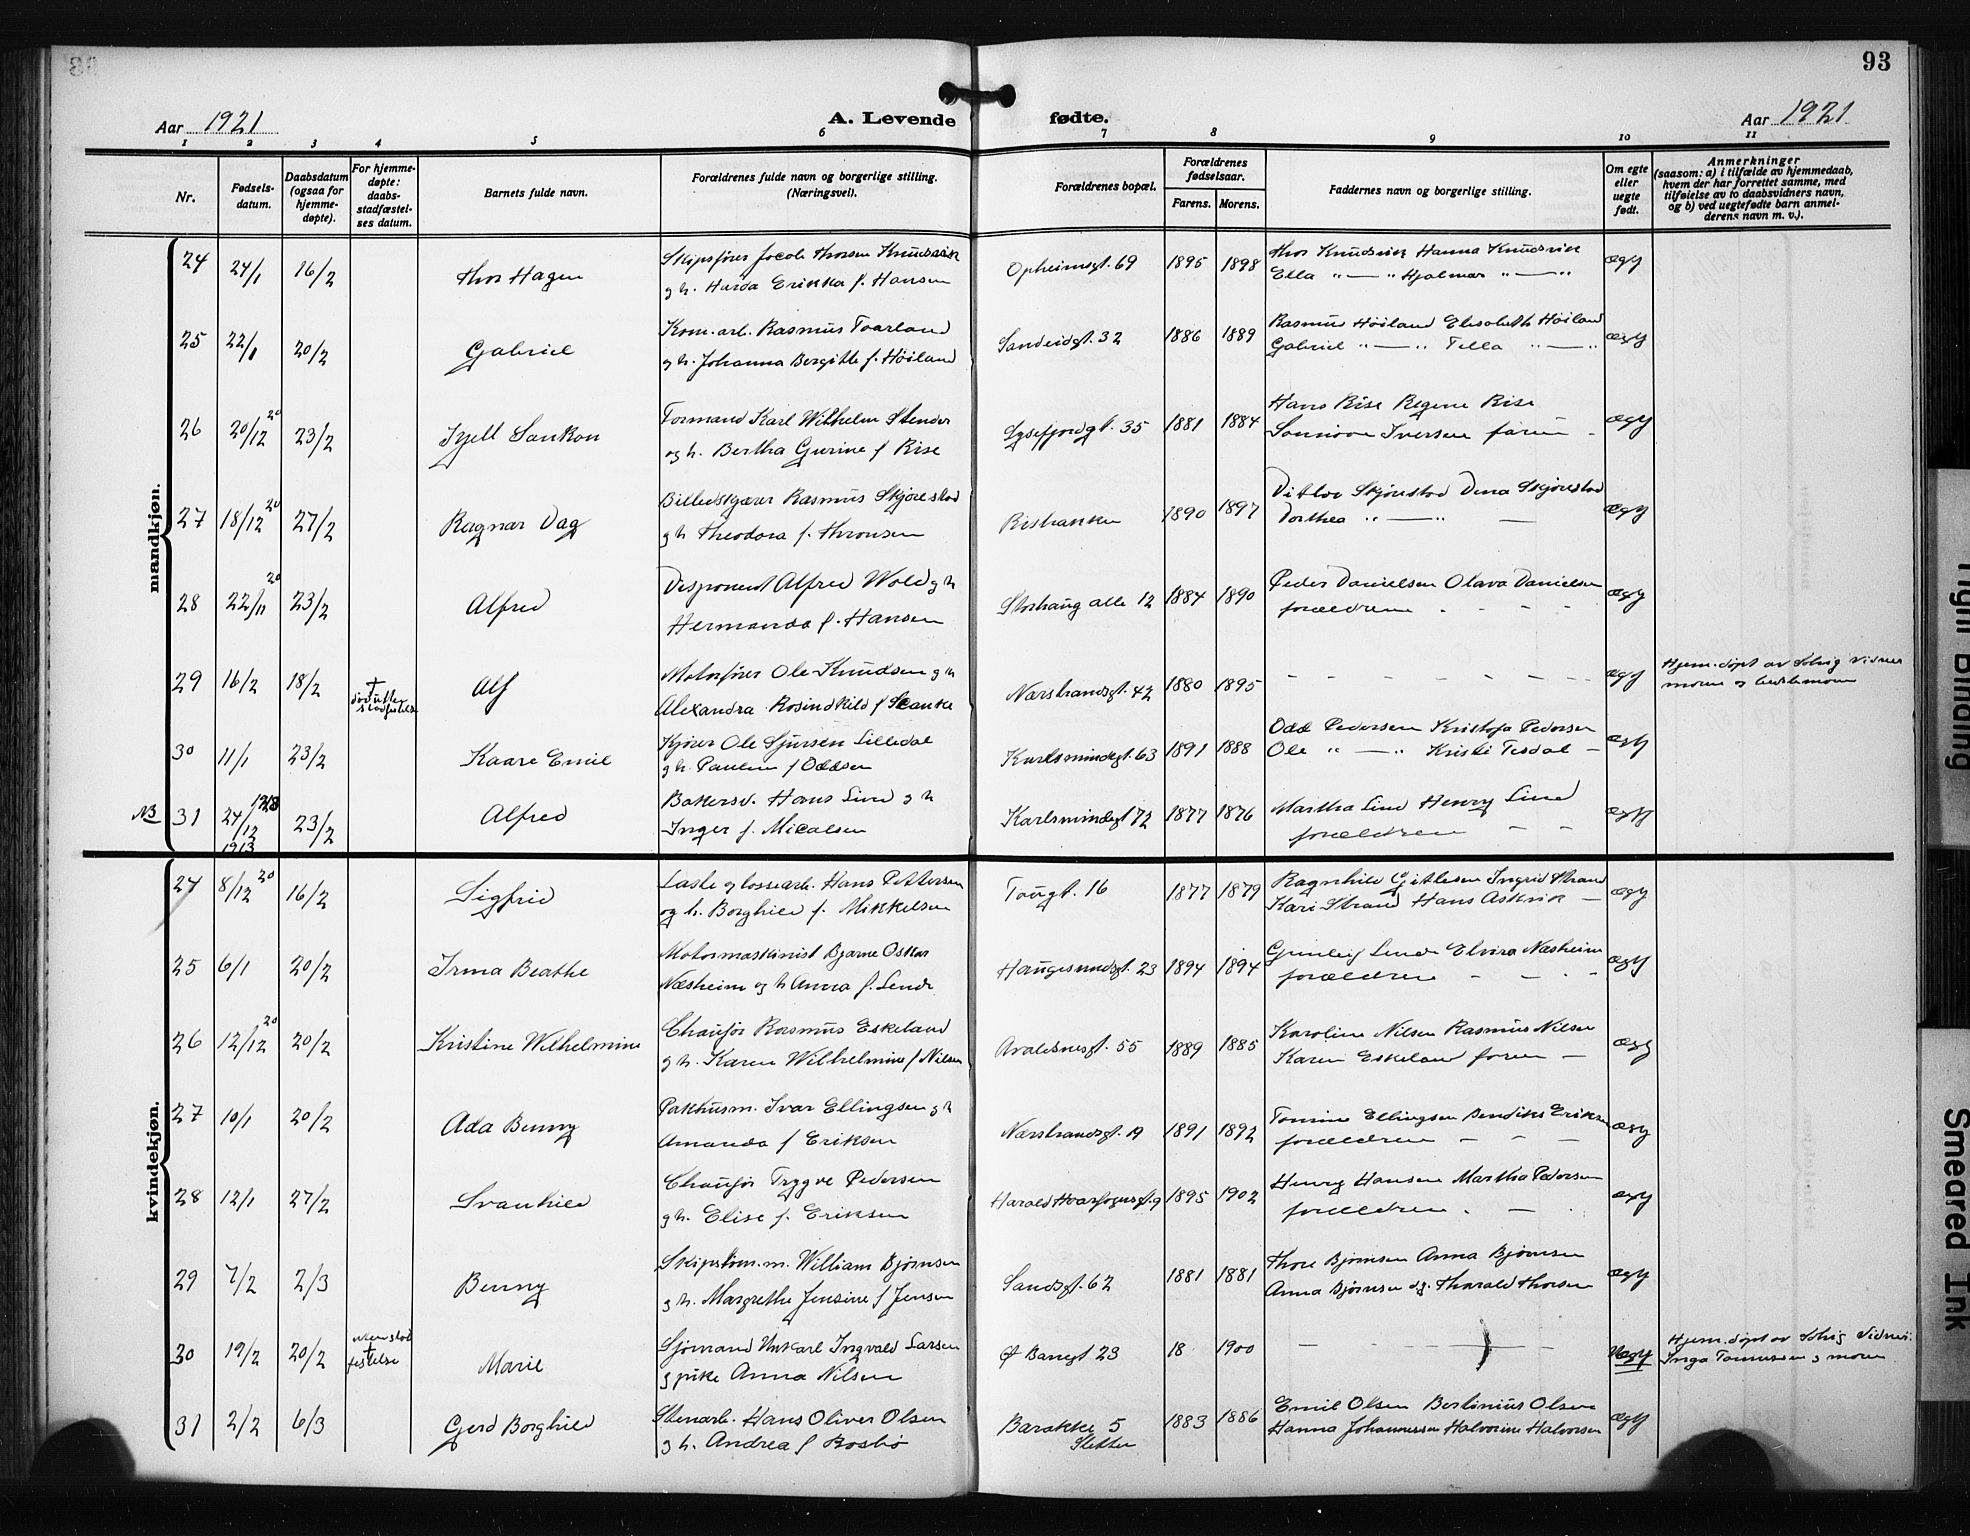 93
Aar 1921
A. Levende fødte.
Aar 1921
1 2 3 4 5 6 7 8 9 10 11
Nr.
Fødsels-
datum.
Daabsdatum
(ogsaa for
hjemme-
døpte).
For hjemme-
døpte:
daabs-
stadfæstel-
ses datum.
Barnets fulde navn.
Forældrenes fulde navn og borgerlige stilling.
(Næringsvei).
Forældrenes bopæl.
Forældrenes
fødselsaar.
Farens. Morens.
Faddernes navn og borgerlige stilling.
Om egte
eller
uegte
født.
Anmerkninger
(saasom: a) i tilfælde av hjemmedaab,
hvem der har forrettet samme, med
tilføielse av to daabsvidners navn,
og b) ved uegtefødte barn anmel-
derens navn m. v.).
mandkjøn.
24 24/1 16/2 Thor Hagen
Skipsfører Jacob Thorsen Knudsvik
og h. Harda Erikka f. Hansen
Opheimsgt. 69 1895 1898
Thor Knudsvik Hanna Knudsvik
Ella " — " Hjalmar " — "
ægt
25 22/1 20/2 Gabriel
Kom. arb. Rasmus Taarland
og h. Johanna Bergitte f. Høiland
Sandeidgt. 32 1886 1889
Rasmus Høiland Elisabeth Høiland
Gabriel " — " Tella " — "
ægt
26 20/12 20 23/2 Kjell Sankon
Formand Karl Wilhelm Stender
og h. Bertha Gurine f Rise
Lysefjordgt. 35 1881 1884
Hans Rise Regine Rise
Iversen faren -
ægt
27 18/12 20 27/2 Ragnar Dag
Billedskjærer Rasmus Skjørestad
og h Theodora f. Thronsen
Risbakken 1890 1897
Ditlov Skjørestad Dina Skjørestad
Dorthea " — " —
ægt
28 22/11 20 23/2 Alfred
Disponent Alfred Wold og h
Hermanda f. Hansen
Storhaug alle 12 1884 1890
Peder Danielsen Olava Danielsen
forældrene - - - -
ægt
29 16/2 18/2
†
død uten
stadfestelse
Alf
Motorfører Ole Knudsen og h
Alexandra Rosindkild f Skanke
Nærstrandsgt. 42 1880 1895
- - - - - - - -
ægt
Hjem. døpt av Solvig Vidnes
moren og bestemoren
30 11/1 23/2 Kaare Emil
Kjører Ole Sjursen Lilledal
og h. Pauline f Oddsen
Karlsmindegt. 63 1891 1888
Odd Pedersen Kristofa Pedersen
Ole " — " Kristi Tesdal -
ægt
NB 31 24/12 1913 23/2 Alfred
Bakersv. Hans Lund og h
Inger f. Micalsen
Karlsmindegt 72 1877 1876
Martha Lund Henry Lund
forældrene — —
ægt
kvindekjøn.
24 8/12 20 16/2 Sigfrid
Laste og lossearb. Hans Pettersen
og h. Borghild f. Mikkelsen
Tougt. 16 1877 1879
Ragnhild Gitlesen Ingrid Strand
Kari Strand Hans Askvik —
ægt
25 6/1 20/2 Irma Beathe
Motormaskinist Bjarne Oskar
Næsheim og h Anna f. Lende
Haugesundsgt. 23 1894 1894
Gunleig Lende Elvira Næsheim
forældrene - - -
ægt
26 12/12 20 20/2 Kristine Wilhelmine
Chaufør Rasmus Eskeland
og h. Karen Wilhelmine f Nilsen
Avaldsnesgt. 55 1889 1885
Karoline Nilsen Rasmus Nilsen
Karen Eskeland faren —
ægt
27 10/1 20/2 Ada Benny
Pakhusm. Ivar Ellingsen og h
Amanda f Eriksen
Nærstrandsgt. 19 1891 1892
Tomine Ellingsen Bendiks Eriksen
forældrene — — —
ægt
28 12/1 27/2 Svanhild
Chaufør Trygve Pedersen
og h. Elise f. Eriksen
Harald Haarfagresgt. 9 1895 1902
Henry Hansen Martha Pedersen
forældrene - — -
ægt
29 7/2 2/3 Benny
Skipstøm. m. William Bjørnsen
og h. Margrethe Jensine f Jensen
Sandsgt. 62 1881 1881
Thore Bjørnsen Anna Bjørnsen
Anna Bjørnsen og Tharald Thorsen
ægt
30 19/2 20/2
uten stad
†
festelse
Marie
Sjømand Unkarl Ingvald Larsen
og pike Anna Nilsen
Ø Banegt 23 18 1900
— - - -
Uægt
Hjem. døpt av Solvig Vidnes.
Inga Tønnessen og moren
31 2/2 6/3 Gerd Borghild
Stenarb. Hans Oliver Olsen
og h. Andrea f Rosbø
Barakke 5
Sletten
1883 1886
Emil Olsen Bertinius Olsen
Hanna Johannessen Halvorine Halvorsen
ægt
Tight Binding
Smeared Ink